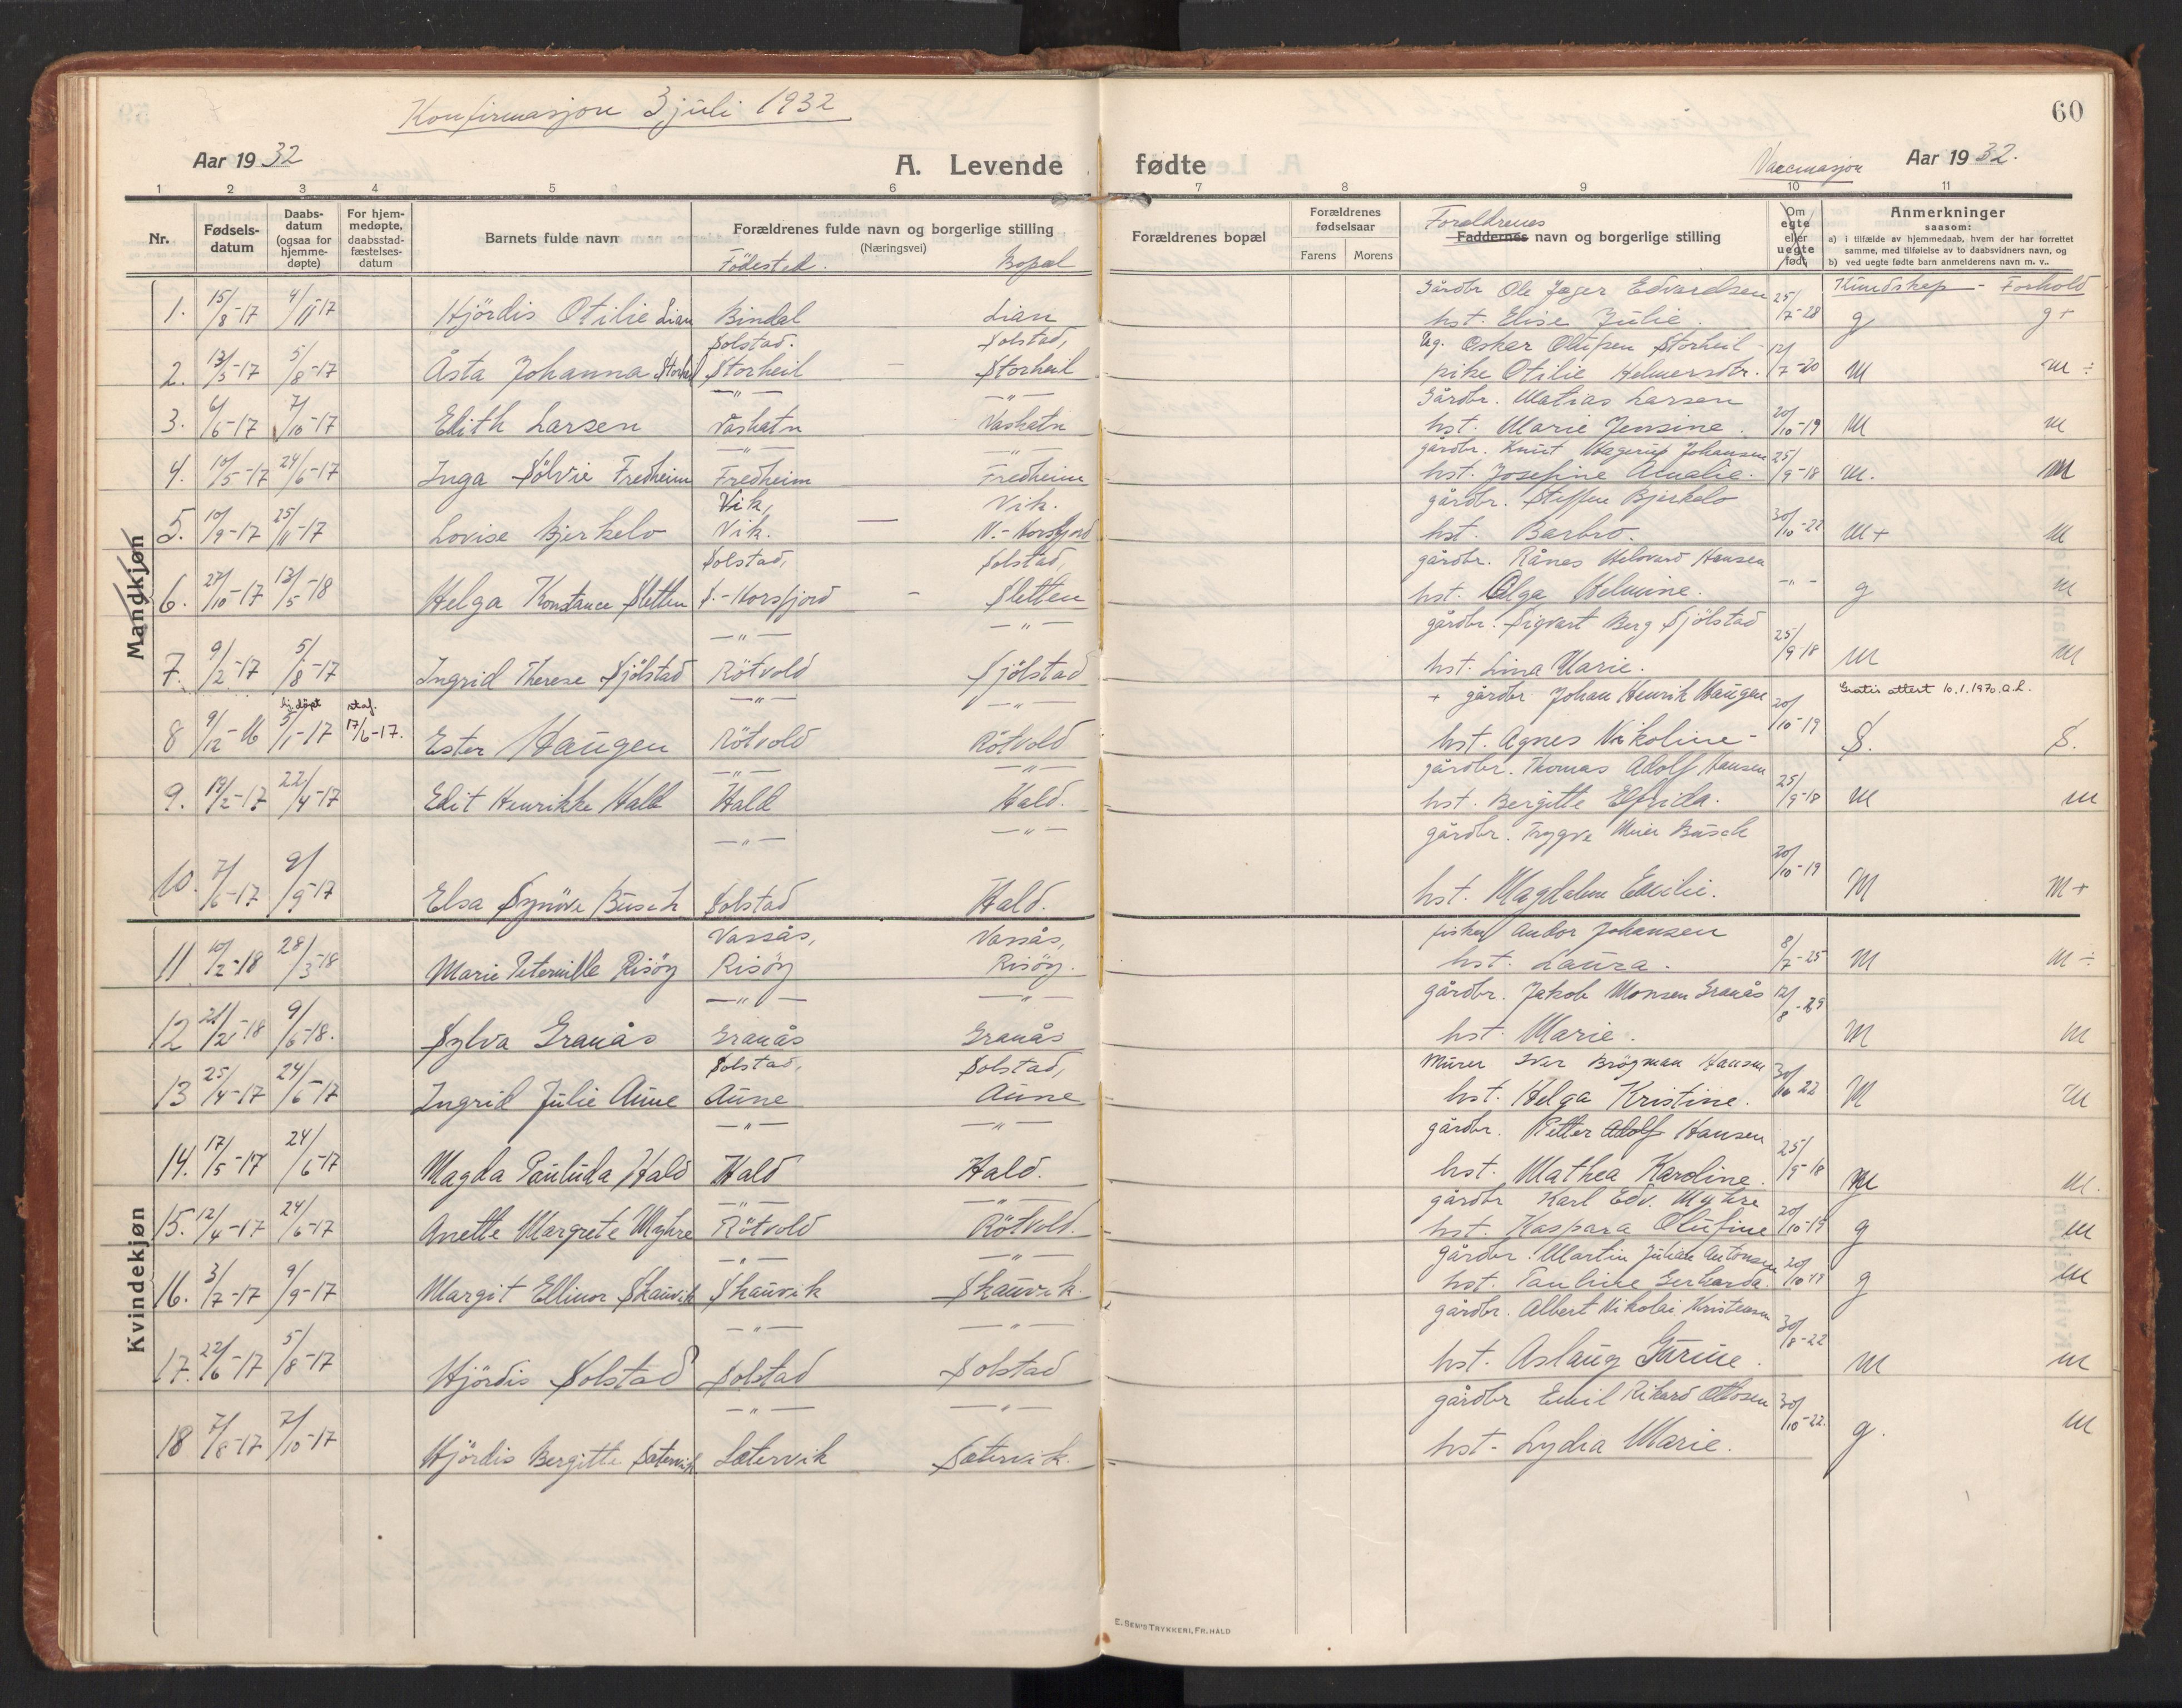 Konfirmasjon 3 juli 1932
60
Aar 1932
A. Levende fødte
Vaccinasjon
Aar 1932.
1 2 3 4 5 6 7 8 9 10 11
Nr.
Fødsels-datum
Daabs-datum (ogsaa for hjemme-døpte)
For hjem-medøpte, daabsstad-fæstelses-datum
Barnets fulde navn
Forældrenes fulde navn og borgerlige stilling
(Næringsvei)
Födested. Bopæl
Forældrenes bopæl
Forældrenes fødselsaar
Farens Morens
Foreldrenes
Faddernes navn og borgerlige stilling
Om egte eller uegte født
Anmerkninger
saasom:
a) i tilfælde av hjemmedaab, hvem der har forrettet samme, med tilføielse av to daabsvidners navn, og
b) ved uegte fødte barn anmelderens navn m. v..
Kundskap - Forhold
Mandkjøn
Kvindekjøn
Gårdbr Ole Jæger Edvardsen
1. 15/8-17 4/11-17 Hjördis Otilie Lian Bindal Lian hst. Elise Julie. 25/7-28 g g+
Solstad. Solstad, Ug. Oskar Olufsen Storheil
2. 13/5-17 5/8-17 Åsta Johanna Storheil Storheil - Storheil pike Otilie Helmersdtr. 12/7-20 M M ÷
-"- -"- Gårdbr. Matias Larsen
3. 6/6-17 7/10-17 Edith Larsen Vashatn Vashatn hst. Marie Jensine. 20/10-19 M M
-"- -"- gårdbr. Knut Hagerup Johansen
4. 10/5-17 24/6-17 Inga Sölvie Fredheim Fredheim Fredheim hst. Josefine Amalie. 25/9-18 M. M
Vik, Vik. gårdbr. Steffen Bjerkelo
5. 10/9-17 25/11-17 Lovise Bjerkelo Vik. - N.-Korsfjord hst. Barbro. 30/10-22 M+ M
Solstad, Solstad, gårdbr. Rånes Helvard Hansen
6. 27/10-17 13/5-18 Helga Konstance Sletten S.-Korsfjord - Sletten hst. Olga Helmine. -"- g M
-"- -"- gårdbr. Sigvart Berg Sjölstad
7. 9/2-17 5/8-17 Ingrid Therese Sjölstad Rötvold Sjölstad hst. Lina Marie. 25/9-18 M M
hj.döpt staf. -"- -"- + gårdbr Johan Henrik Haugen Gratis attest 10.1.1970. a.L.
8 9/12-16 5/1-17 17/6-17. Ester Haugen Rötvold Rötvold hst. Agnes Nikoline - 20/10-19 S. S.
-"- -"- gårdbr. Thomas Adolf Hansen
9. 19/2-17 22/4-17 Edit Henrikke Hald Hald Hald. hst. Bergitte Elfrida. 25/9-18 M M
-"- -"- gårdbr. Trygve Meier Busch
10. 7/6-17 9/9-17 Elsa Synöve Busch Solstad Hald. hst. Magdalene Emilie. 20/10-19 M M+
Vassås, Vassås, fisker Andor Johansen
11 10/2-18 28/3-18 Marie Peternille Risöy Risöy Risöy. hst. Laura. 8/7-25 M M ÷
-"- -"- gårdbr. Jakob Monsen Granås
12 21/2-18 9/6-18. Sylva Granås Granås Granås hst. Marie. 12/8-29 M M
Solstad, Solstad, Murer Iver Brögman Hansen
13 25/4-17 24/6-17 Ingrid Julie Aune Aune Aune hst. Helga Kristine. 30/10 22 M M
-"- -"- gårdbr. Petter Adolf Hansen
14. 17/5-17 24/6-17 Magda Pauluda Hald Hald Hald. hst. Mathea Karoline. 25/9-18 M.
-"- -"- gårdbr Karl Edv. Myhre
15. 12/4-17 24/6-17 Anette Margrete Myhre Rötvold Rötvold. hst. Kaspara Olufine 20/10-19 g M
-"- -"- gårdbr. Martin Julian Antonsen
16. 3/7-17 9/9-17 Margit Ellinor Skauvik Skauvik Skauvik. hst. Pauline Gerharda. 20/10 19 g M
-"- -"- gårdbr. Albert Nikolai Kristensen
17. 22/6-17 5/8-17 Hjördis Solstad Solstad Solstad hst. Aslaug Gurine. 30/8-22 M M
-"- -"- gårdbr Emil Rikard Ottosen
18 7/8-17 7/10-17 Hjördis Bergitte Sætervik Sætervik Sætervik. hst. Lydia Marie. 30/10-22. g. M
E. SEM'S TRYKKERI, FR.HALD